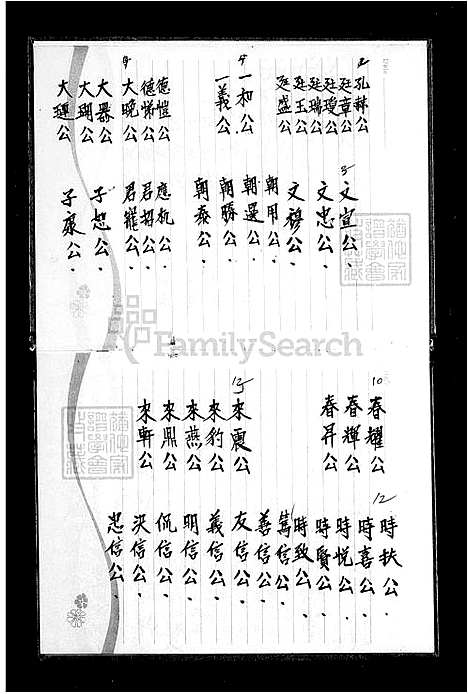 2
孔赫公
廷章公
廷瑝公
廷瑞公
廷玉公
廷盛公
4
一和公
一義公
德愷公
德悌公
大晚公
大器公
大瑚公
大璉公
5
文宣公.
文忠公
文穆公
朝用公
朝選公
朝勝公
朝泰公
應机公
君招公.
君寵公.
子恕公.
子康公.
FamilySearch
10
春耀公
春輝公
春昇公
13
來震公
來豹公
來燕公
來鼎公
來軒公
12
時扶公.
時喜公.
時悦公.
時賢公.
時致公.
篤信公.
善信公.
友信公.
義信公.
明信公.
侃信公.
洪信公.
忠信公.